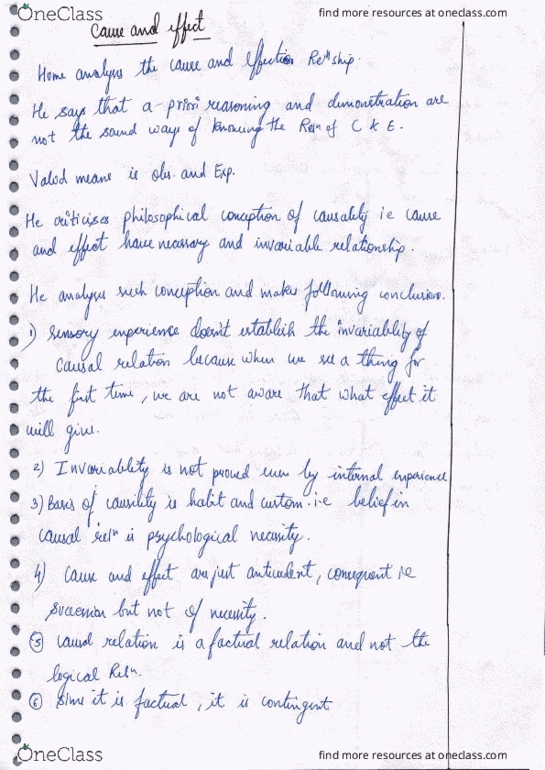 OneClass
find more resources at oneclass.com
Cause and effect
Hume analyses the cause and effection Relnship.
He says that a-priori reasoning and demonstration are
not the sound ways of knowing the Reln of C & E.
Valod means is obs. and Exp.
He criticises philosophical conception of causality ie cause
and effect have necessary and invariable relationship.
He analyses such conception and make following conclusion.
1) Sensory experience doesn't establish the invariability of
causal relation because when we see a thing for
the first time, we are not aware that what effect it
will give.
2) Invariablity is not proved even by internal experience
3) Basis of causility is habit and custom. i.e belief in
causal reln is psychological necessity.
4) cause and effect are just anticedent, consequent ie
succession but not of necessity.
5 causal relation is a factual relation and not the
logical Reln.
6 Since it is factual, it is contingent
OneClass
find more resources at oneclass.com